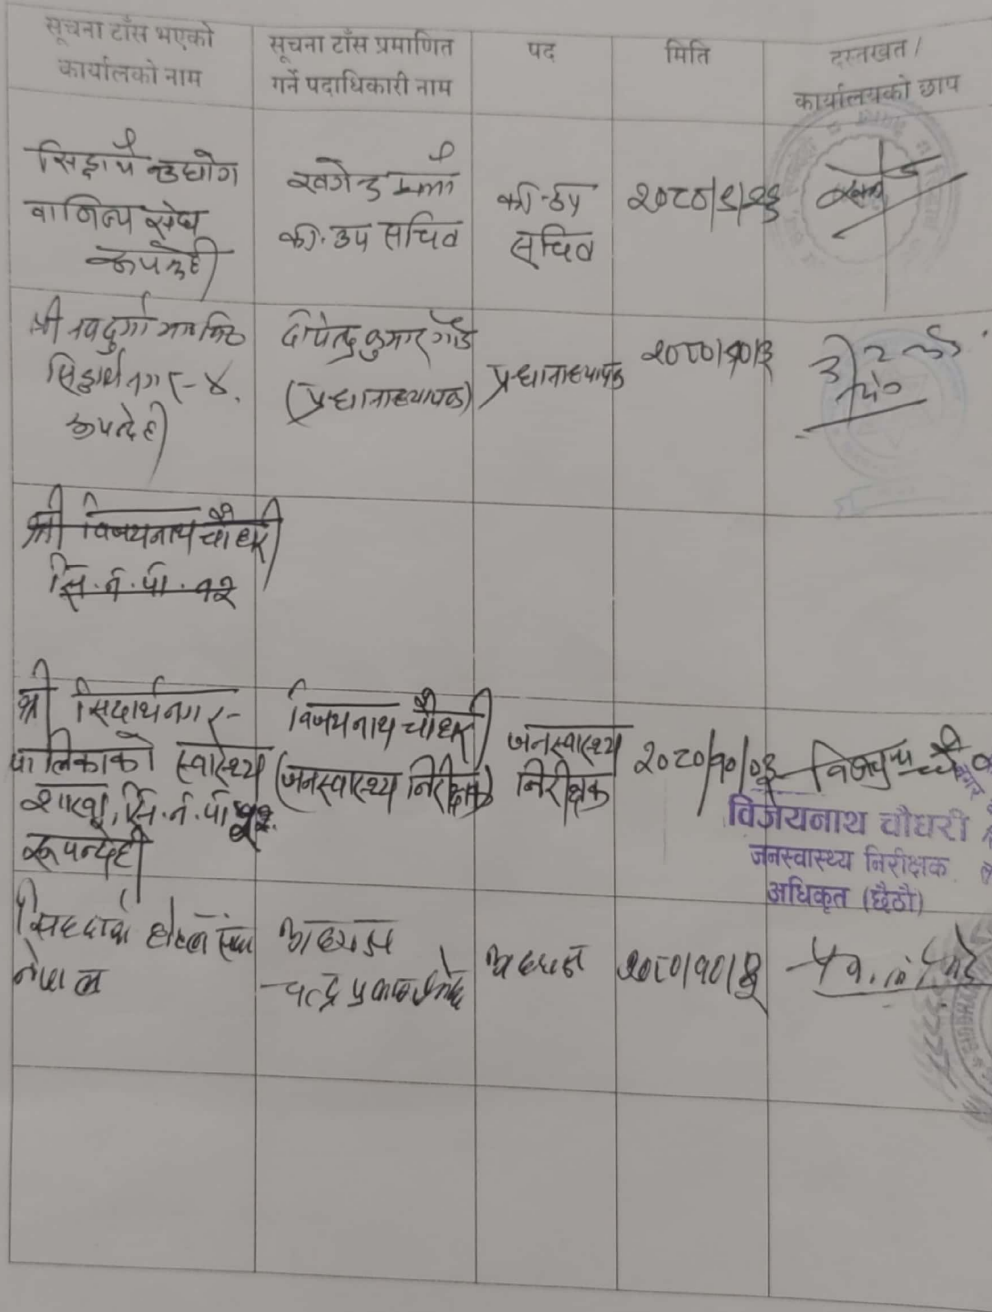 सूचना टाँस भएको
कार्यालको नाम
सूचना टाँस प्रमाणित
गर्ने पदाधिकारी नाम
पद
मिति
दस्तखत /
कार्यालयको छाप
सिद्धार्थ उद्योग
वाणिज्य संघ
रूपन्देही
खगेन्द्र शर्मा
का. उप सचिव
का. उप
सचिव
२०८०/९/२३
श्री नवदुर्गा
सिद्धार्थनगर-४
रूपन्देही
दीपेन्द्र कुमार गोंड
(प्रधानाध्यापक)
प्रधानाध्यापक
२०८०/१०/३
श्री विजयनाथ चौधरी
सि.न.पा. १२
श्री सिद्धार्थनगर-
पालिकाको स्वास्थ्य
शाखा, सि.न.पा.
रूपन्देही
विजयनाथ चौधरी
(जनस्वास्थ्य निरीक्षक)
जनस्वास्थ्य
निरीक्षक
२०८०/१०/०३
विजयनाथ चौधरी
जनस्वास्थ्य निरीक्षक
अधिकृत (छैठौ)
सिद्धार्थ होटल संघ
नेपाल
अध्यक्ष
चन्द्र प्रकाश
अध्यक्ष
२०८०/१०/३